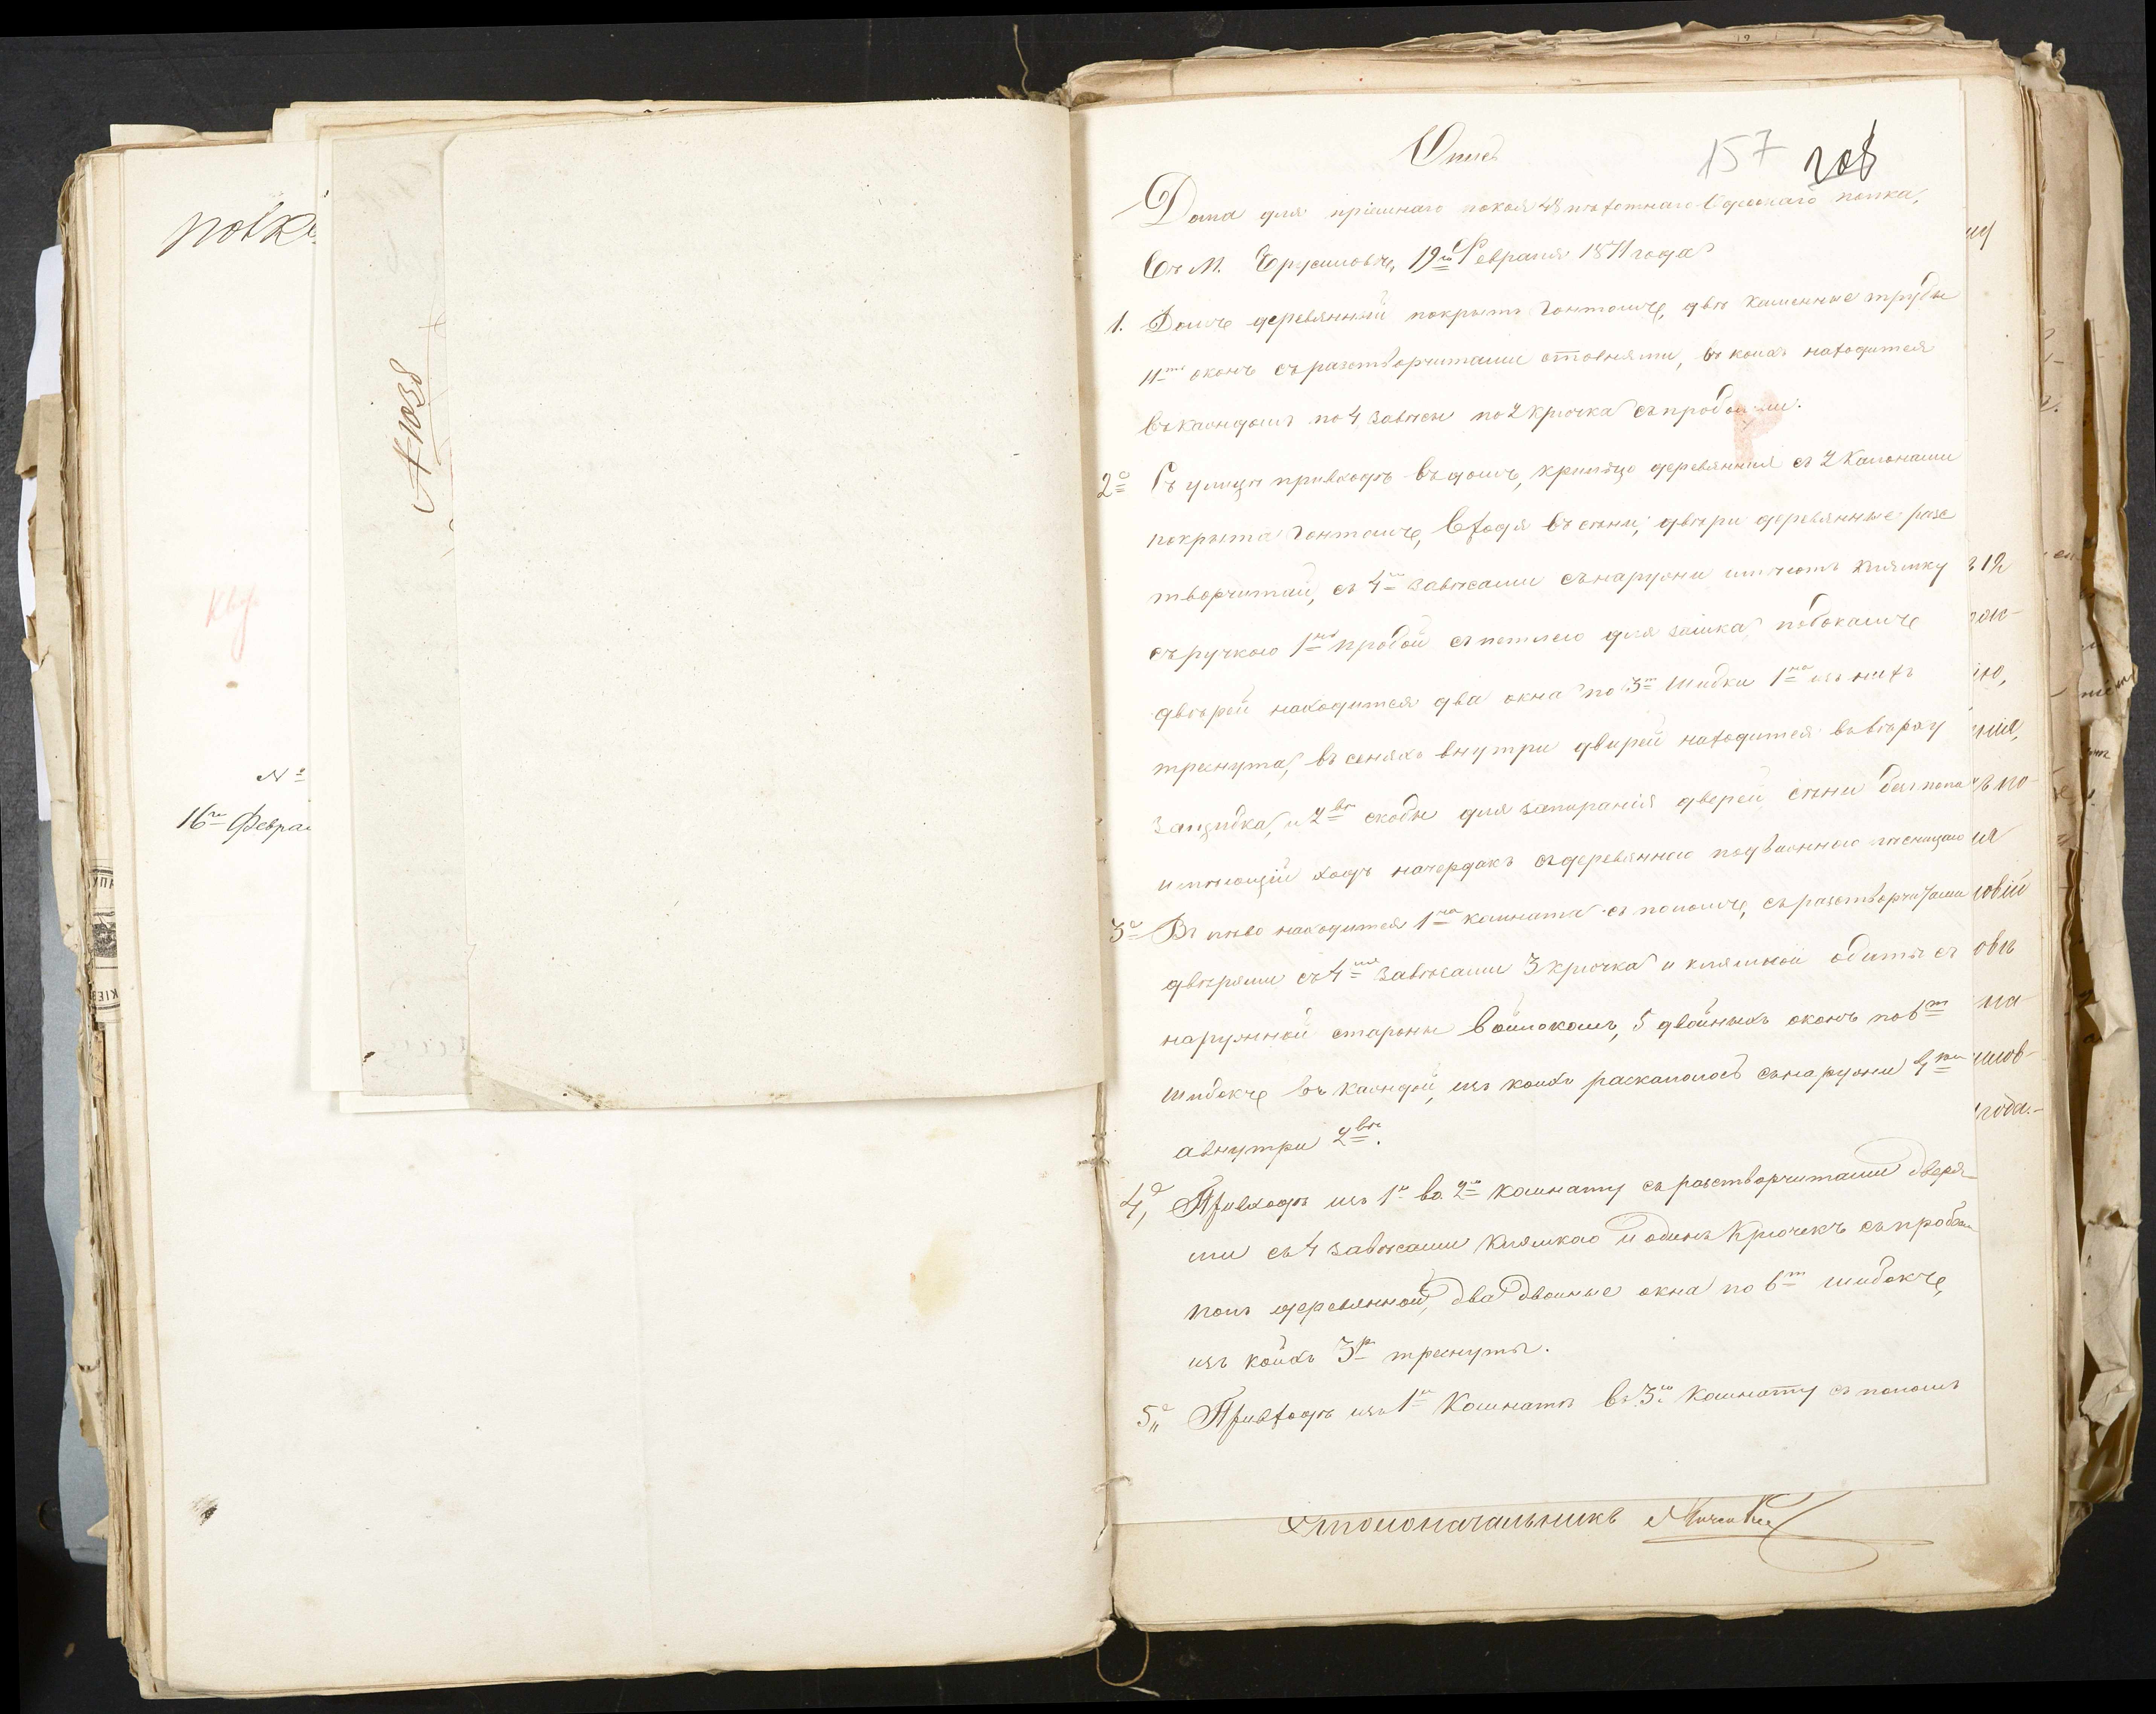 полка
А 1038
Кву
№
16го Февра
Опись
157 208
Дома для пріемнаго покоя 48 пѣхотнаго Одескаго полка,
Въ М. Ермолинцѣ, 19го Февраля 1871 года
1. Домъ деревянный покрытъ Гонтомъ, двѣ каменные трубы
11ть оконъ съ растворчитами отовнями, въ коихъ находится
въ каждомъ по 4 завѣсы по 2 крючка съ пробоями.
2е Съ улицы привходѣ въ домъ, крыльцо деревянныя съ 2 Калонами
покрыта Гонтомъ, Входя въ сѣни, двѣри деревянные разс
творчитыи, съ 4мя завѣсами сънаружи имѣютъ клямку
съ ручкою 1нъ пробой съ петлею для замка побокамъ
двѣрей находится два окна по 3и шибки 1на изъ нихъ
треснута, въ сеняхъ внутри дверей находится въвѣрху
защибка, и 2вѣ скобы для запиранія дверей сѣни безпола
имѣющій ходъ начердакъ съдеревянною подъвижною лѣсницаю
3е Въ лѣво находится 1на комната съ поломъ, съ растворчитами
двѣрями съ 4мя завѣсами 3 крючка и клямкой обиты съ
наружной стараны войлокомъ, 5 двойныхъ оконъ по 6ть
шибокъ въ каждой, изъ коихъ раскалолось сънаружи 4ре
авнутри 2вѣ.
4, Привходѣ изъ 1й во 2ю комнату съ растворчитами дверя
ми съ 4 завѣсами клямкаю и одинъ Крючекъ съ пробоем
полъ деревянной, два двойные окна по 6ть шибокъ,
изъ коихъ 3и треснуты.
5 Привходѣ изъ 1й Комнаты въ 3ю комнату съ поломъ
му
ъ 12
ію,
нія,
ъ по
ия
овій
овъ
на
шов-
года.-
Столоначальникъ